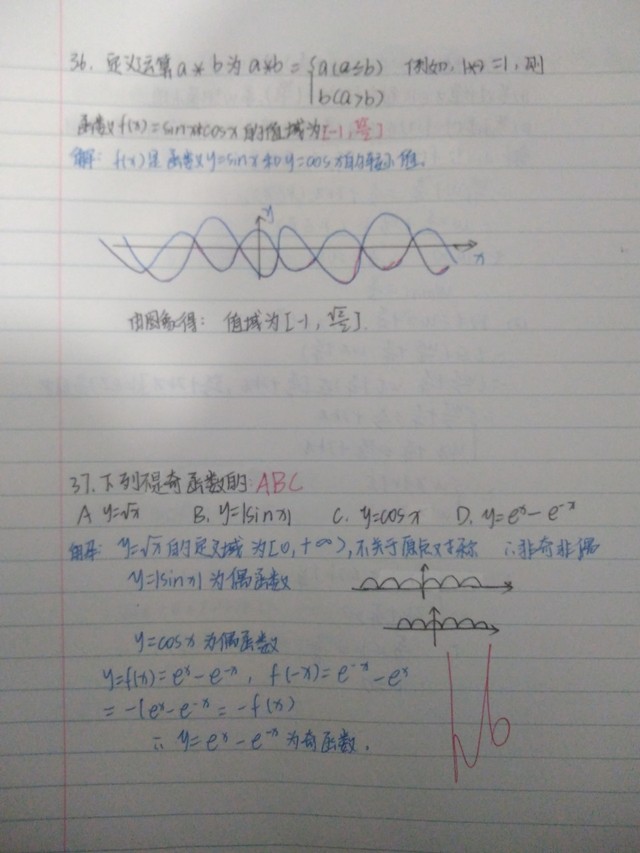 36. 定义运算a*b为a*b={a(a≤b) 例如, 1*2=1, 则
b(a>b)
函数f(x)=sinx*cosx的值域为[-1, √2/2]
解: f(x)是函数y=sinx和y=cosx的较小值.
y
x
由图象得: 值域为[-1, √2/2].
37. 下列不是奇函数的: ABC
A y=√x B. y=|sinx| C. y=cosx D. y=eˣ-e⁻ˣ
解: y=√x的定义域为[0,+∞), 不关于原点对称 ∴非奇非偶
y=|sinx|为偶函数
y=cosx为偶函数
y=f(x)=eˣ-e⁻ˣ, f(-x)=e⁻ˣ-eˣ
=-(eˣ-e⁻ˣ=-f(x)
∴ y=eˣ-e⁻ˣ为奇函数.